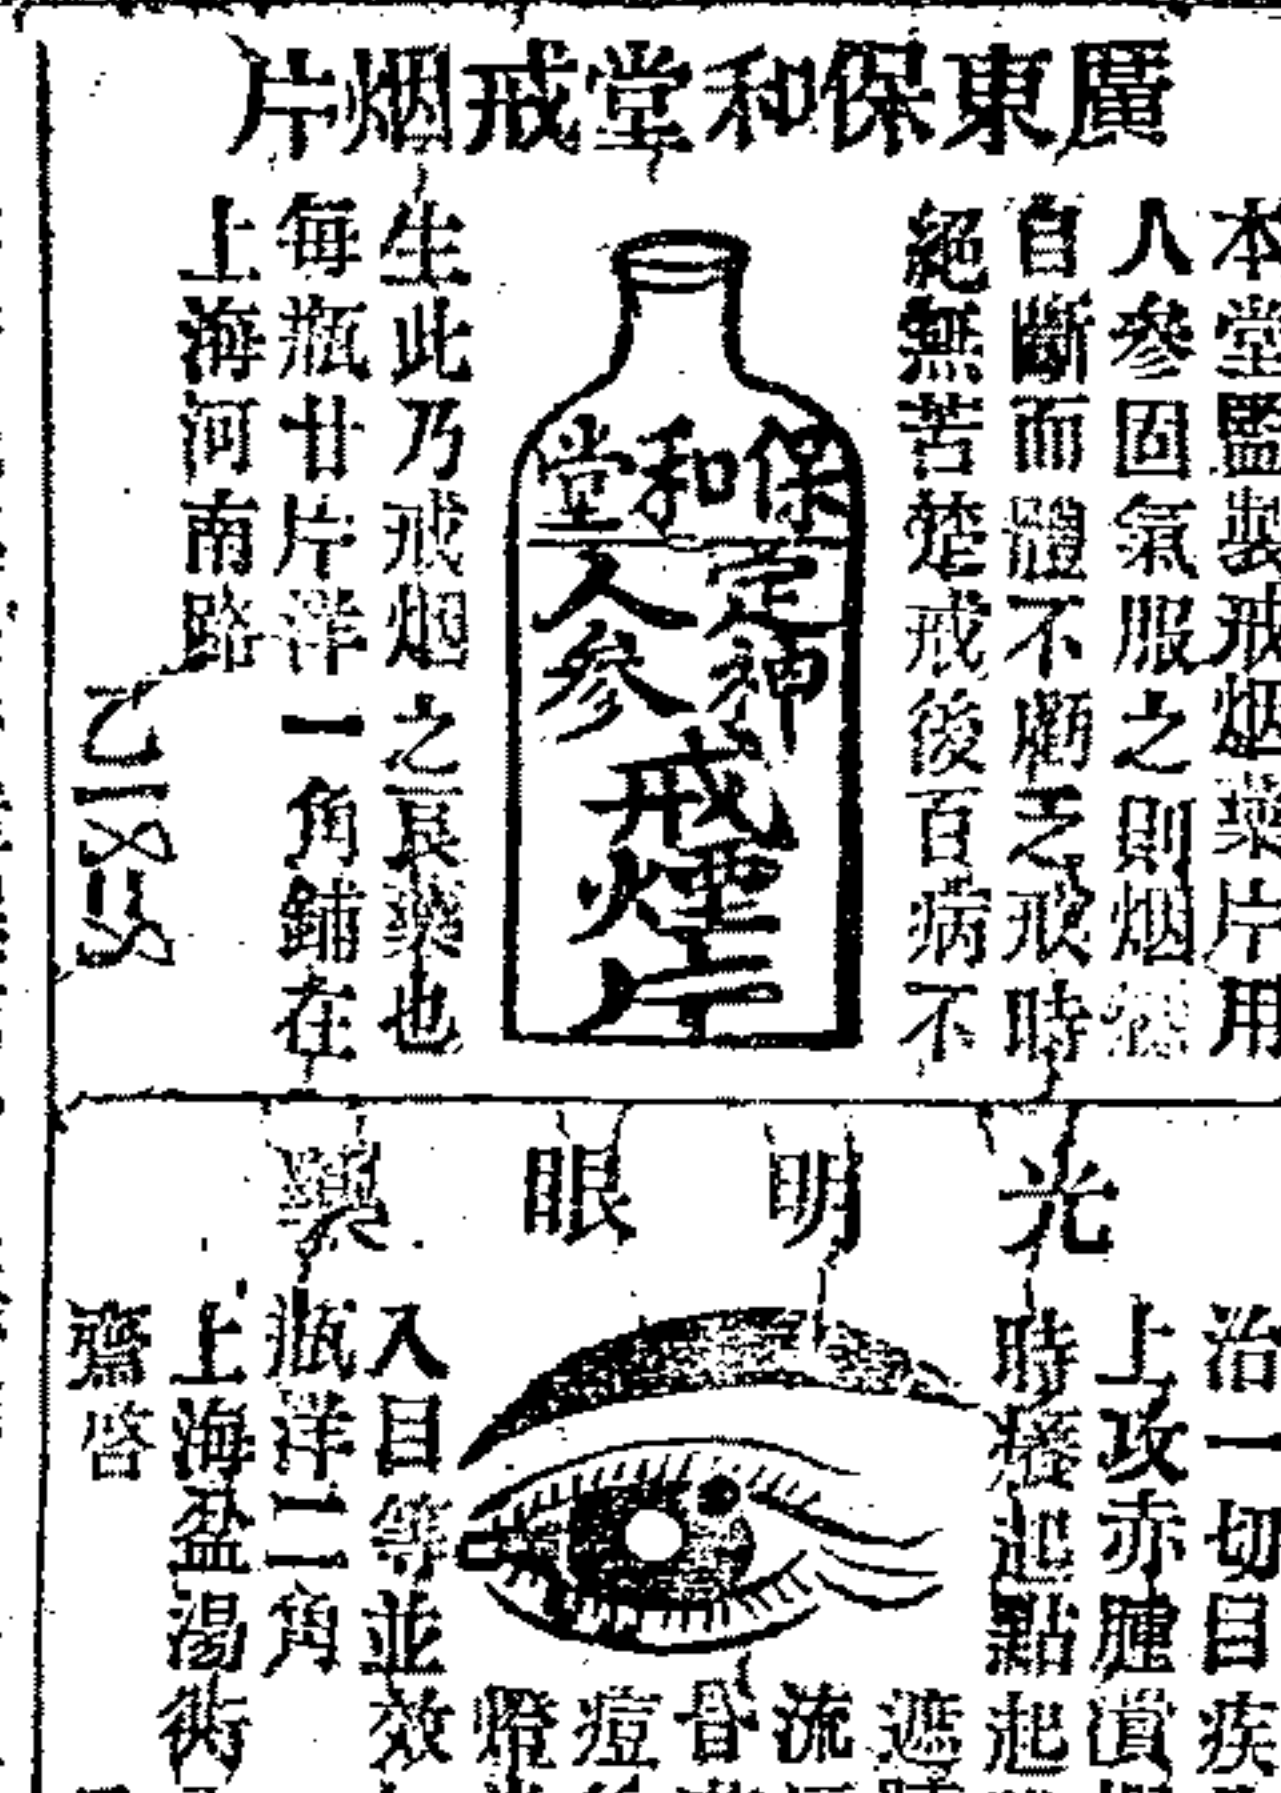 廣東保和堂戒烟片
本堂監製戒烟藥片用
人參固氣服之則烟
自斷而體不
乏戒時
絕無苦楚戒後百病不
保和堂
定神
人參
戒煙片
生此乃戒烟之良藥也
每瓶廿片洋一角鋪在
上海河南路
光明眼藥
治一切目疾
上攻赤腫
時
起點起
遮
流
痘
燈
入目等並效
瓶洋二角
上海盆湯衖
齋啓